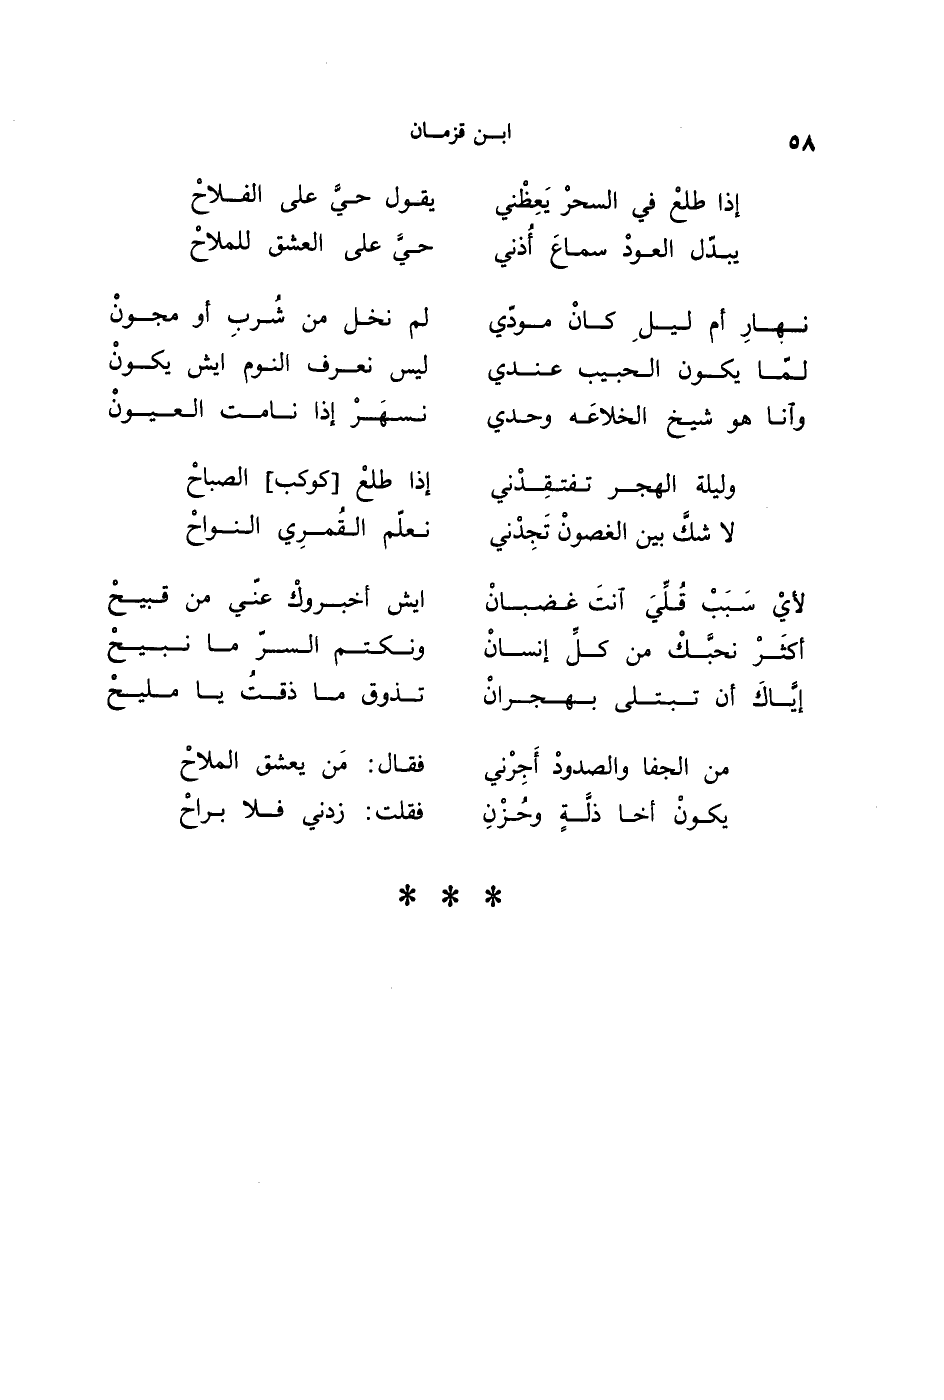 ٥٨
ابن قزمان
إذا طلعْ في السحرْ يَعِظْني يقول حيَّ على الفلاحْ
يبدّل العودْ سماعَ أُذني حيَّ على العشق للملاحْ
نهارِ أم ليلِ كانْ مودّي لم نخل من شُربِ أو مجونْ
لمّا يكون الحبيب عندي ليس نعرف النوم ايش يكونْ
وآنا هو شيخ الخلاعَه وحدي نسهَرْ إذا نامت العيونْ
وليلة الهجر تفتقِدْني إذا طلعْ [كوكب] الصباحْ
لا شكَّ بين الغصونْ تَجِدْني نعلّم القُمرِي النواحْ
لأيْ سَبَبْ قُلِّيَ آنتَ غضبانْ ايش أخبروكْ عنّي من قبيحْ
أكثَرْ نحبَّكْ من كلِّ إنسانْ ونكتم السرّ ما نبيحْ
إيَّاكَ أن تبتلى بهجرانْ تذوق ما ذقتُ يا مليحْ
من الجفا والصدودْ أَجِرْني فقال: مَن يعشق الملاحْ
يكونْ أخا ذلَّةٍ وحُزْنِ فقلت: زدني فلا براحْ
* * *